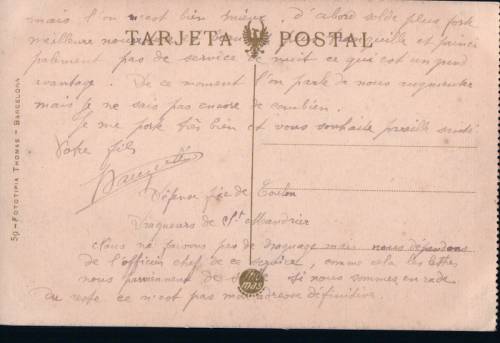 mais l'on n'est bien mieux. d'abord solde plus forte
meilleure nourriture tranquille et princi
TARJETA POSTAL
palement pas de service de nuit ce qui est un grand
avantage. De ce moment l'on parle de nous augmenter
mais je ne sais pas encore de combien.
Je me porte très bien et vous souhaite pareille santé
Votre fils
Défense fixe de Toulon
Dragueurs de St Mandrier
Nous ne faisons pas de draguage mais nous dépendons
de l'officier chef de ce service, comme cela les lettres
nous parviennent de suite si nous sommes en rade
Du reste ce n'est pas mon adresse définitive.
THOMAS
59 - FOTOTIPIA THOMAS - BARCELONA